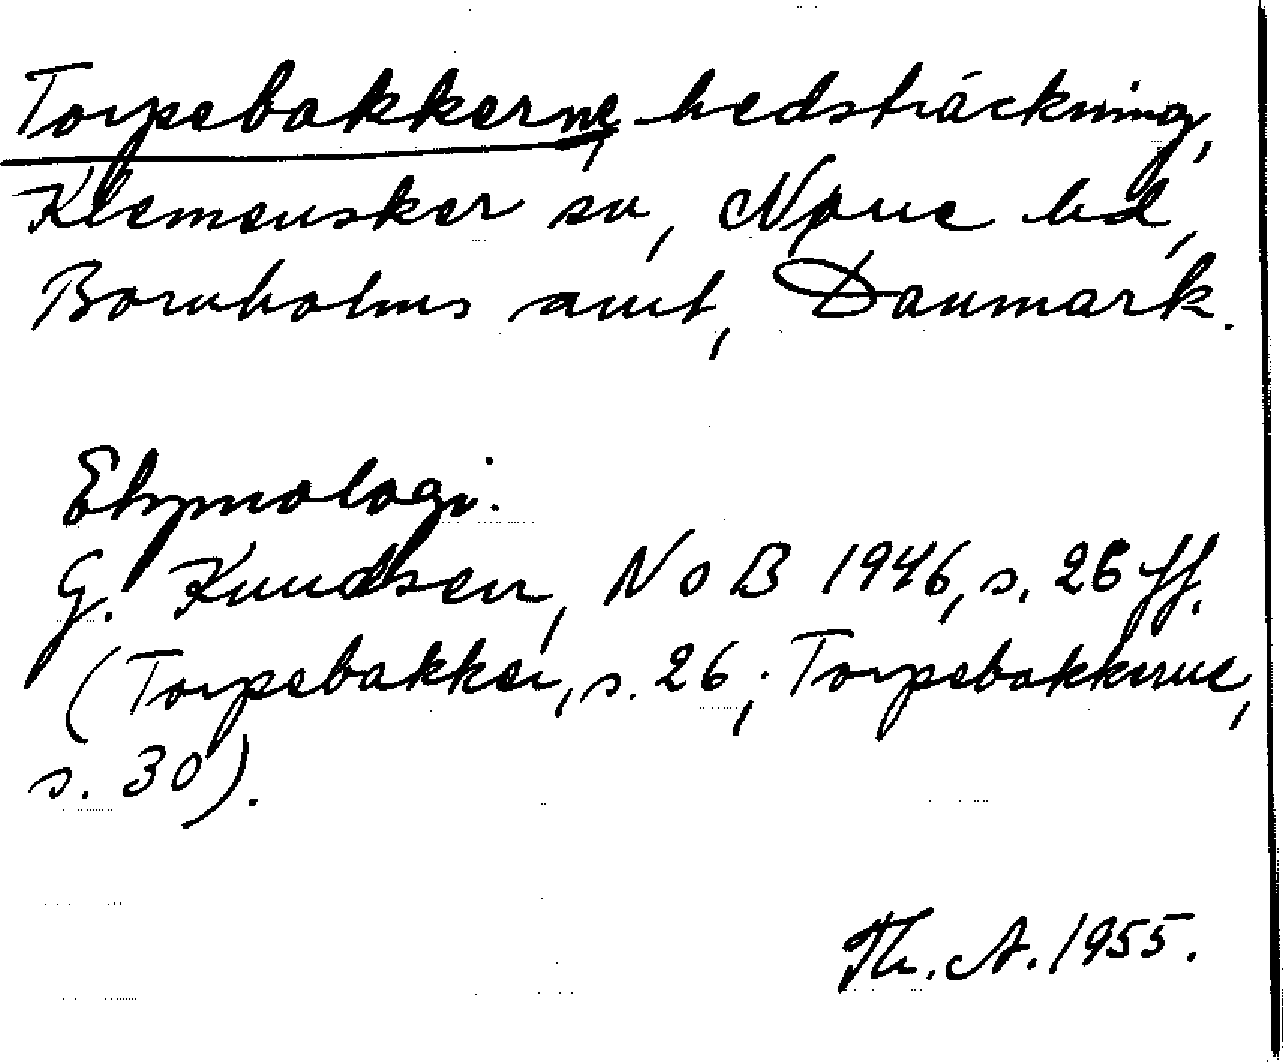 Torpebakkerne, hedsträckning,
Klemensker sn, Nørre hd,
Bornholms amt, Danmark.
Etymologi.
G. Knudsen, NoB 1946, s. 26 ff.
(Torpebakker, s. 26; Torpebakkerne,
s. 30).
Th. A. 1955.